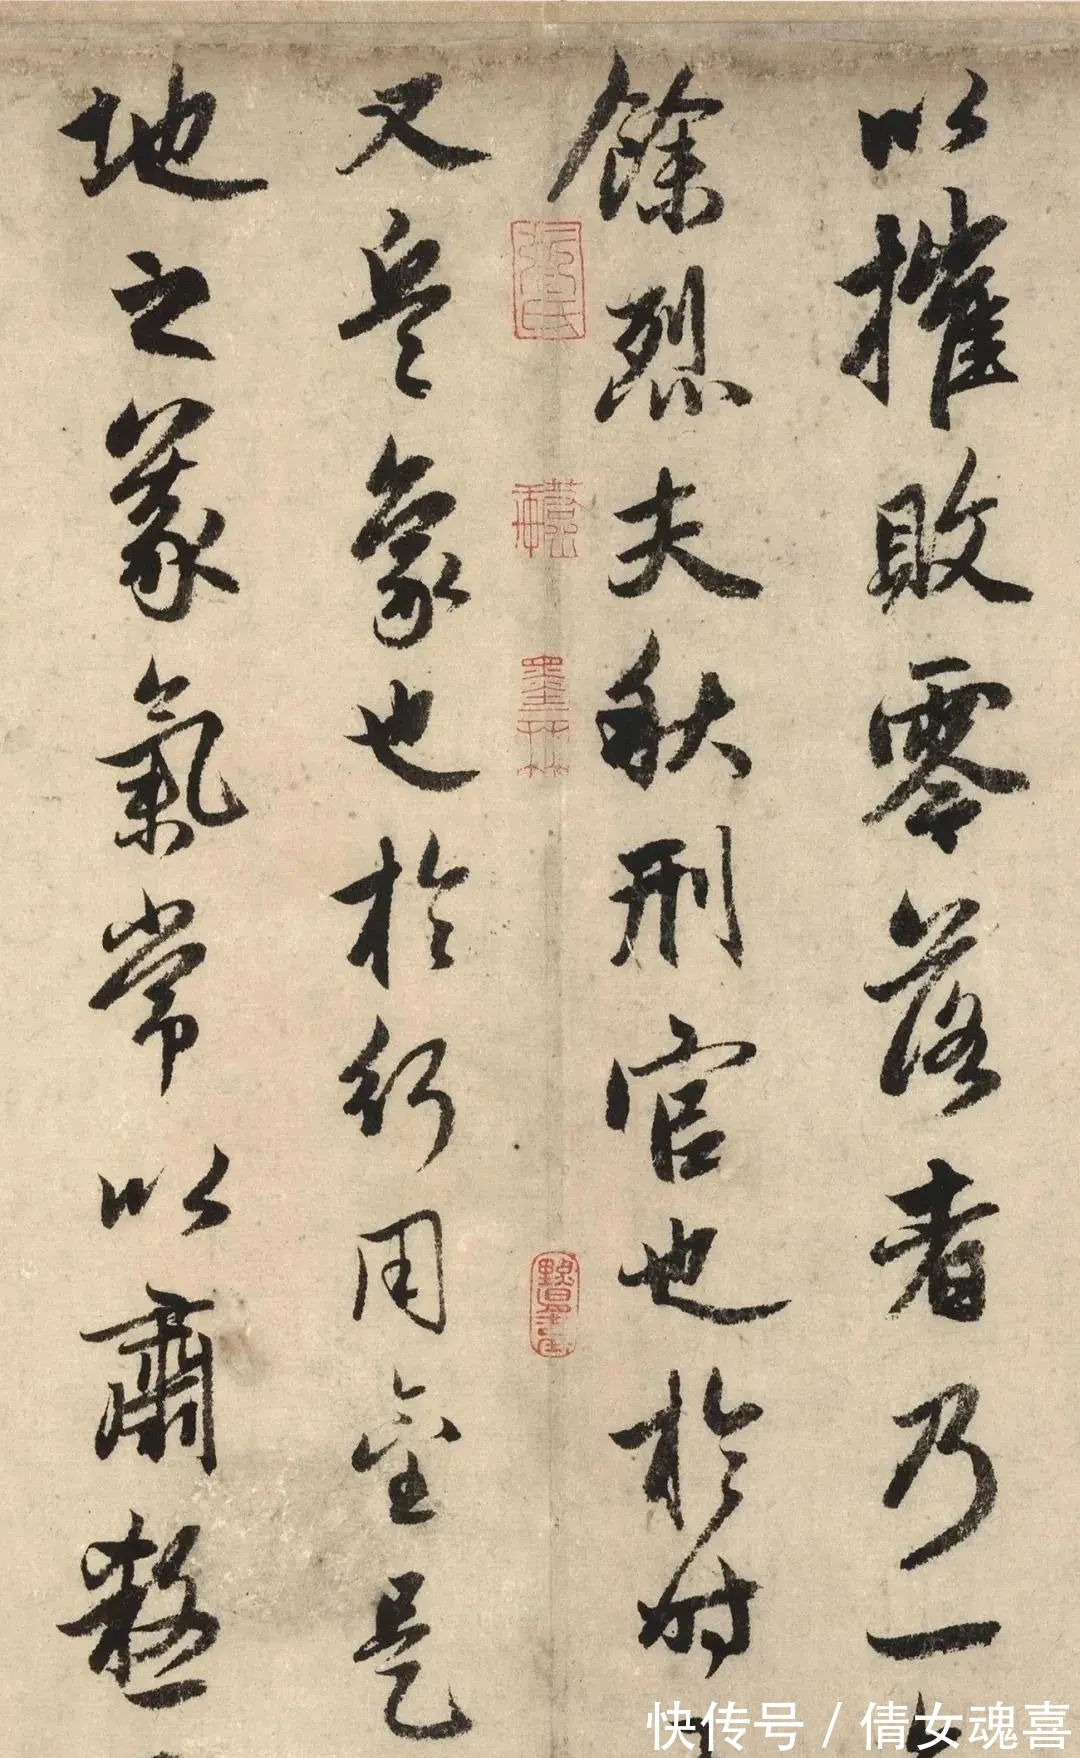 以摧敗零落者乃一
餘烈夫秋刑官也於時
又兵象也於行用金是
地之義氣常以肅殺
快传号 / 倩女魂喜